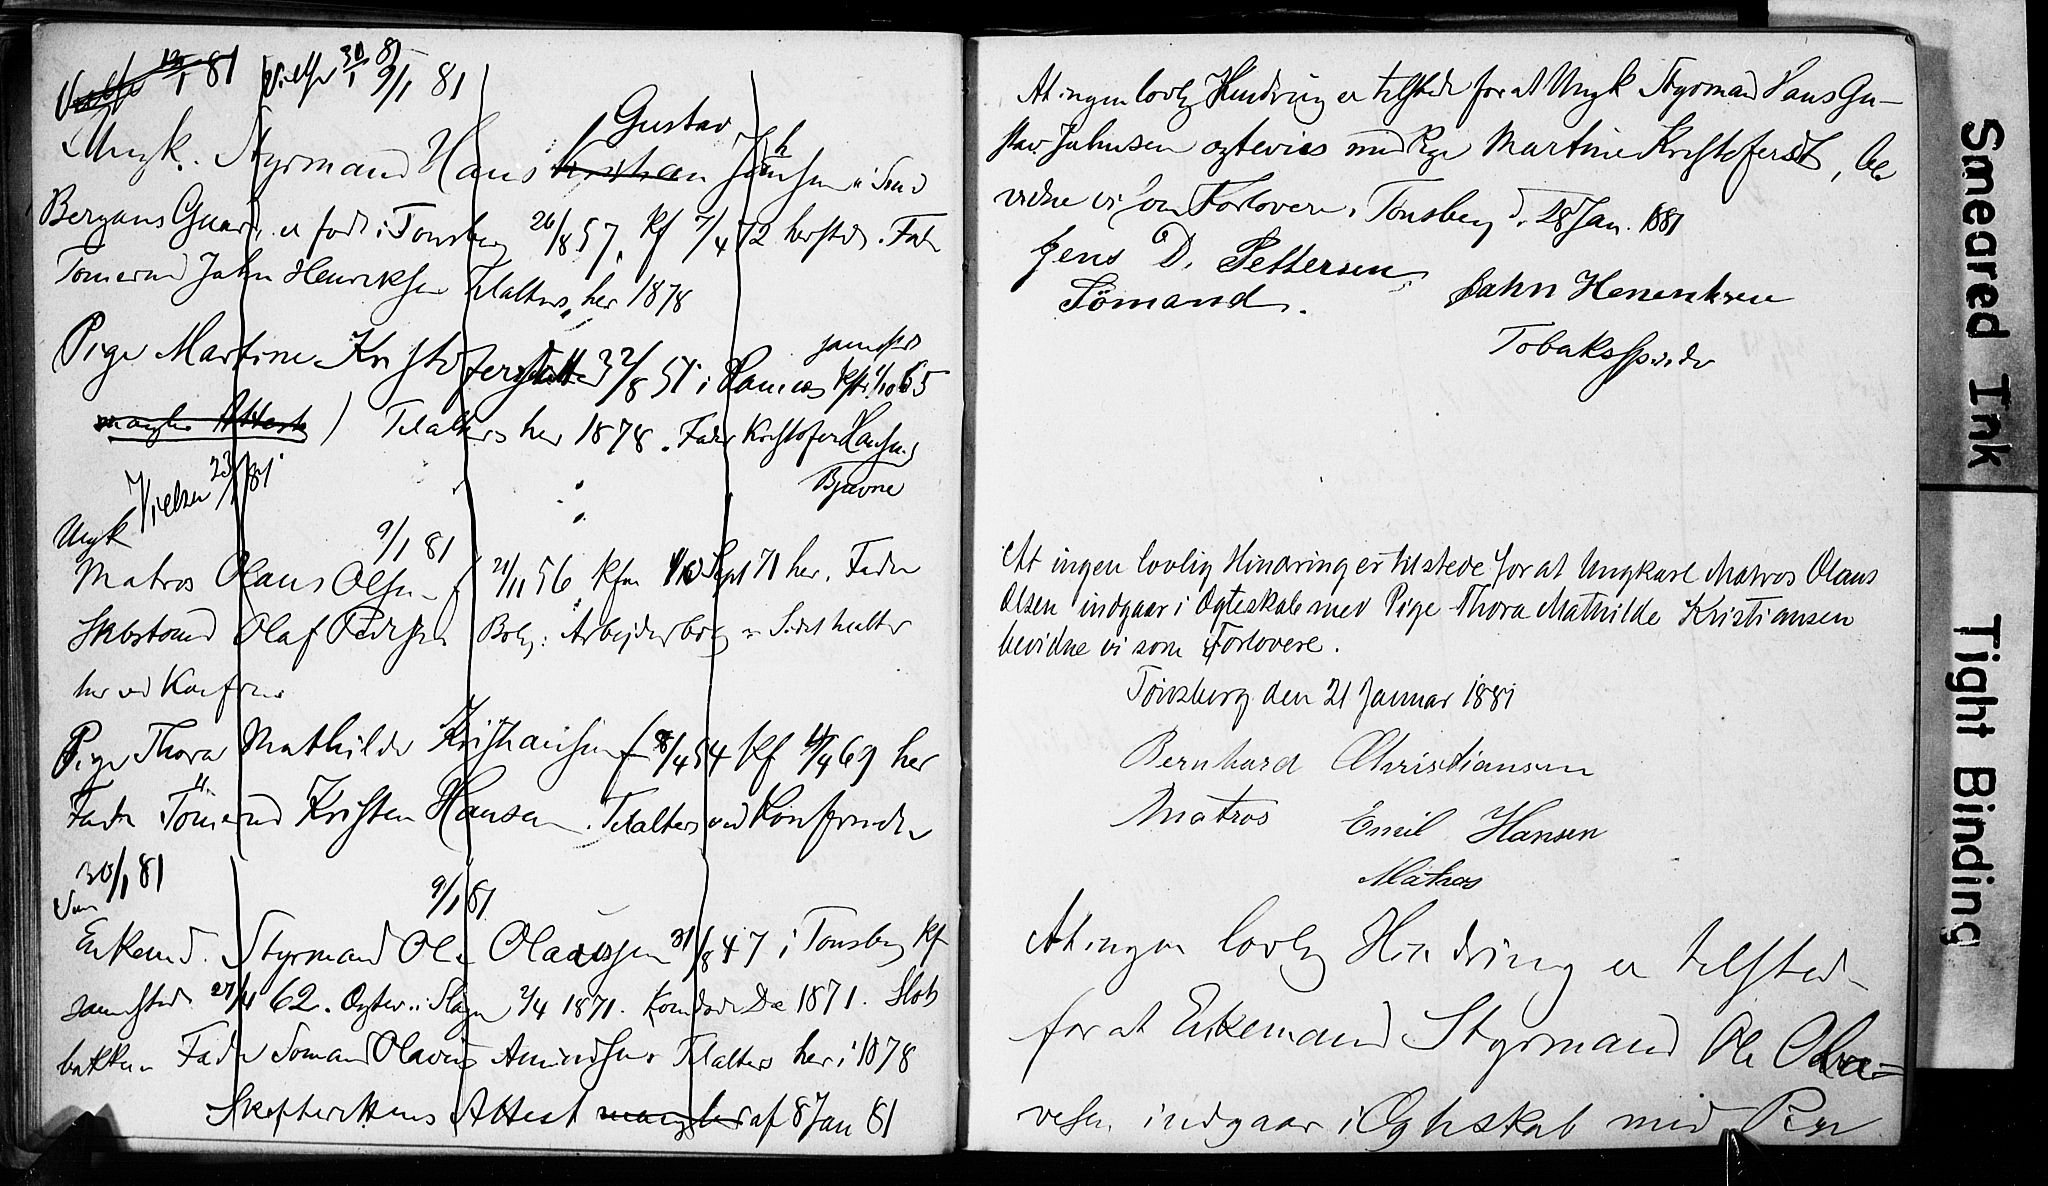 Vielse 30/1 81 9/1 81
Gustav
Ungk. Styrmand Hans Kristian Jahnsen i Svend
Bergans Gaard, er født i Tønsberg 26/8 57, Kf 7/4 72 hersteds. Fader
Tømermd Jahn Henriksen Tilalters her 1878
Pige Martine Kristofersdatter 2/8 51 i Ramnes Kft 1/10 65
samsteds
mangler Attest ) Tilalters her 1878. Fader Kristofer Hansen
Bjavne
Vielsen 23/1 81
Ungk 9/1 81
Matros Olaus Olsen f 21/11 56 Kfm 1/10 Sept 71 her. Fader
Skibstømd Olaf Pedersen Bolig: Arbejderbolig Sidst tilalter
her ved Konfirm
Pige Thora Mathilde Kristiansen f 8/4 54 Kf 4/4 69 her
Fader Tömermd Kristen Hansen. Tilalters ved Konfirmation
30/1 81
9/1 81
Enkemd. Styrmand Ole Olavesen 31/8 47 i Tønsberg Kf
samsteds 27/4 62. Ægtev. i Slagen 2/4 1871. Kon døde De 1871. Slots
bakken Fader Sømand Olavus Amundsen Tilalters her i 1878
Skifterettens Attest mangler af 8 Jan 81
At ingen lovlig Hindring er tilstede for at Ungk Styrmand Hans Gu-
stav Jahnsen ægtevies med Pige Martine Kristofersdt, be
vidne vi som Forlovere, Tønsberg d. 28 Jan. 1881
Jens D. Pettersen,
Sömand.
Jahn Henenksen
Tobaksspinder
At ingen lovlig Hindring er tilstede for at Ungkarl Matros Olaus
Olsen indgaar i Ægteskab med Pige Thora Mathilde Kristiansen
bevidne vi som Forlovere.
Tönsberg den 21 Januar 1881
Bernhard Christiansen
Matros
Emil Hansen
Matros
At ingen lovlig Hindring er tilstede
for at Enkemand Styrmand Ole Olva=
vesen indgaar i Ægteskab med Pige
Smeared Ink
Tight Binding